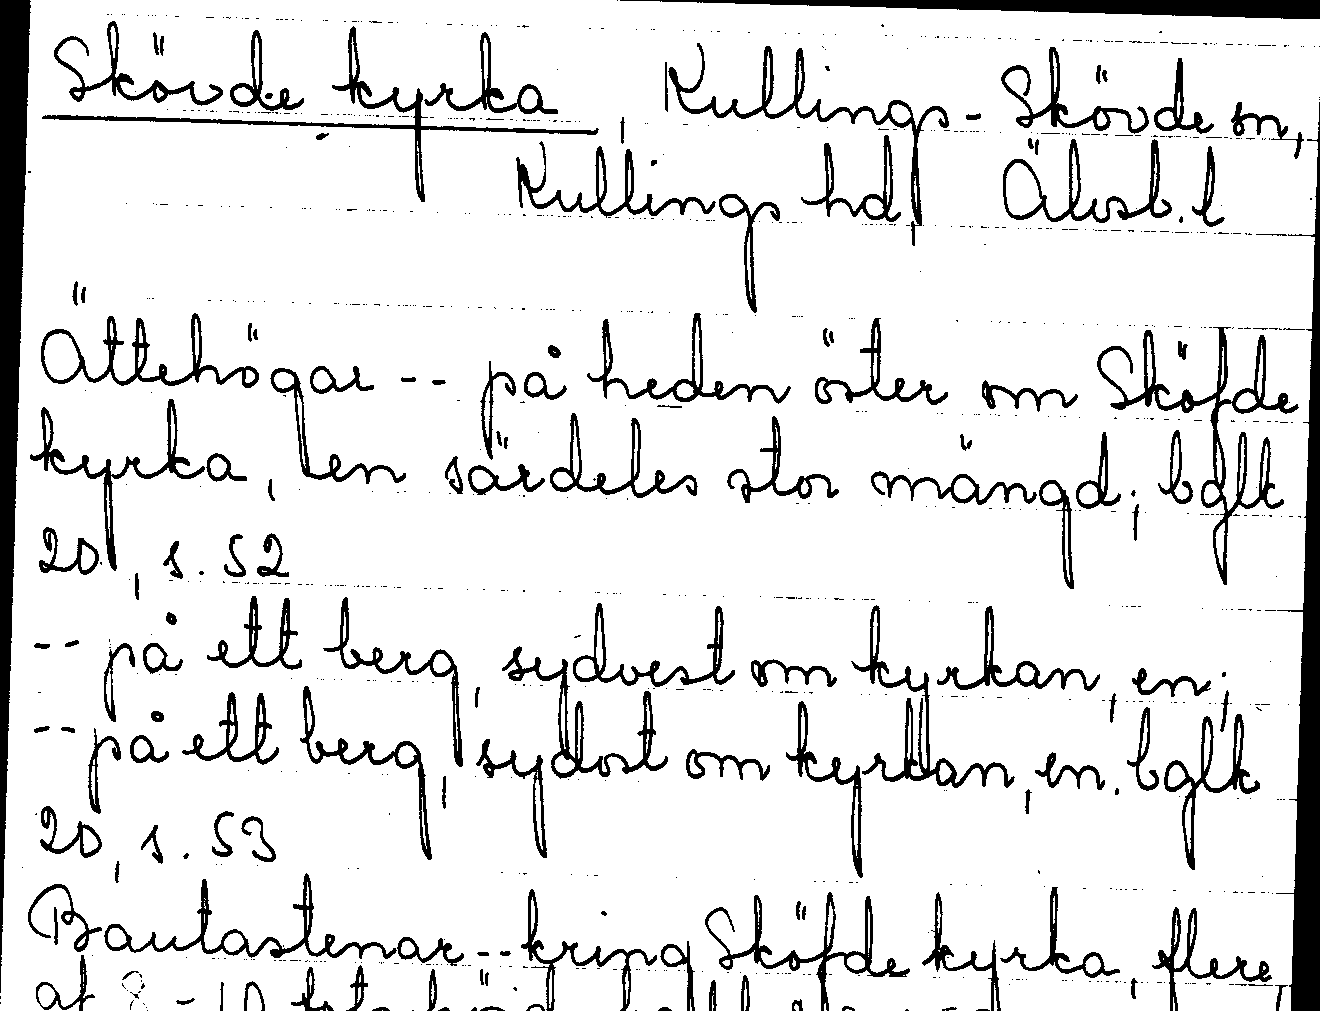 Skövde kyrka, Kullings-Skövde sn,
Kullings hd, Älvsb. l
Ättehögar -- på heden öster om Sköfde
kyrka, en särdeles stor mängd; bglk
20, s. 52
-- på ett berg, sydvest om kyrkan, en;
-- på ett berg, sydost om kyrkan, en. bglk
20, s. 53
Bautastenar -- kring Sköfde kyrka, flere
af 8-10 fots höjd